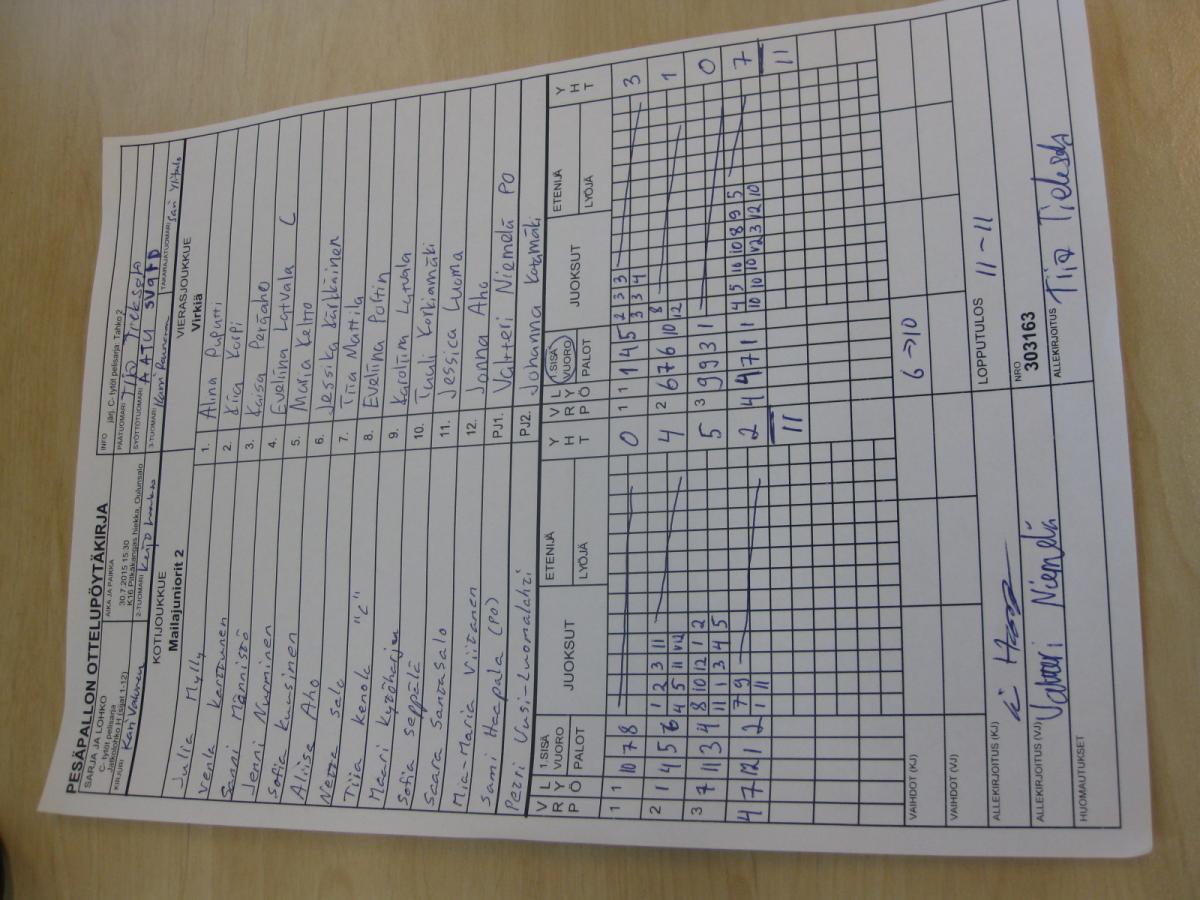 PESÄPALLON OTTELUPÖYTÄKIRJA
SARJA JA LOHKO
C- tytöt pelisarja
Jatkolohko H (sijat 1-12)
AIKA JA PAIKKA
30.7.2015 15:30
K16 Pitkäkangas hiekka, Oulunsalo
INFO järj. C- tytöt pelisarja: Tahko 2
PÄÄTUOMARI Tia Tieksola
SYÖTTÖTUOMARI AATU
KIRJURI Kari Valkonen
2-TUOMARI Keijo
3-TUOMARI
TAKARAJATUOMARI Sari Ylitalo
KOTIJOUKKUE
Mailajuniorit 2
VIERASJOUKKUE
Virkiä
Julia Mylly 1. Alina Puputti
Venla Kerttunen 2. Kiia Karpi
Sanni Männistö 3. Kaisa Peräaho
Jenni Nurminen 4. Eveliina Latvala C
Sofia Kuusinen 5. Maria Keltto
Aliisa Aho 6. Jessika Kärkkäinen
Neea Salo 7. Tiia Mattila
Tiia Kenola "C" 8. Eveliina Poltin
Meeri Kytöharju 9. Karoliina Latvala
Sofia Seppälä 10. Tuuli Korkiamäki
Saara Santasalo 11. Jessica Luoma
Mia-Maria Viitanen 12. Jonna Aho
Sami Haapala (PO) PJ1. Valtteri Niemelä PO
Petri Uusi-Luomalahti PJ2. Johanna Katamäki
VRP LYÖ 1.SISÄ VUORO PALOT JUOKSUT ETENIJÄ LYÖJÄ YHT VRP LYÖ 1.SISÄ VUORO PALOT JUOKSUT ETENIJÄ LYÖJÄ YHT
1 1 10 7 8 0 1 1 1 4 5 2 3 3 3
3 3 4
2 1 4 5 6 1 2 3 11 4 2 6 7 6 10 8 1
4 5 11 12 12
3 7 11 3 4 8 10 12 1 2 5 3 9 9 3 1 0
11 1 3 4 5
4 7 12 1 2 7 9 2 2 4 4 7 11 4 5 10 10 8 9 5 7
1 11 10 10 12 3 12 10
11 11
VAIHDOT (KJ) 6 → 10
VAIHDOT (VJ)
ALLEKIRJOITUS (KJ)
LOPPUTULOS 11 - 11
ALLEKIRJOITUS (VJ) Valtteri Niemelä
NRO
303163
HUOMAUTUKSET
ALLEKIRJOITUS Tia Tieksola